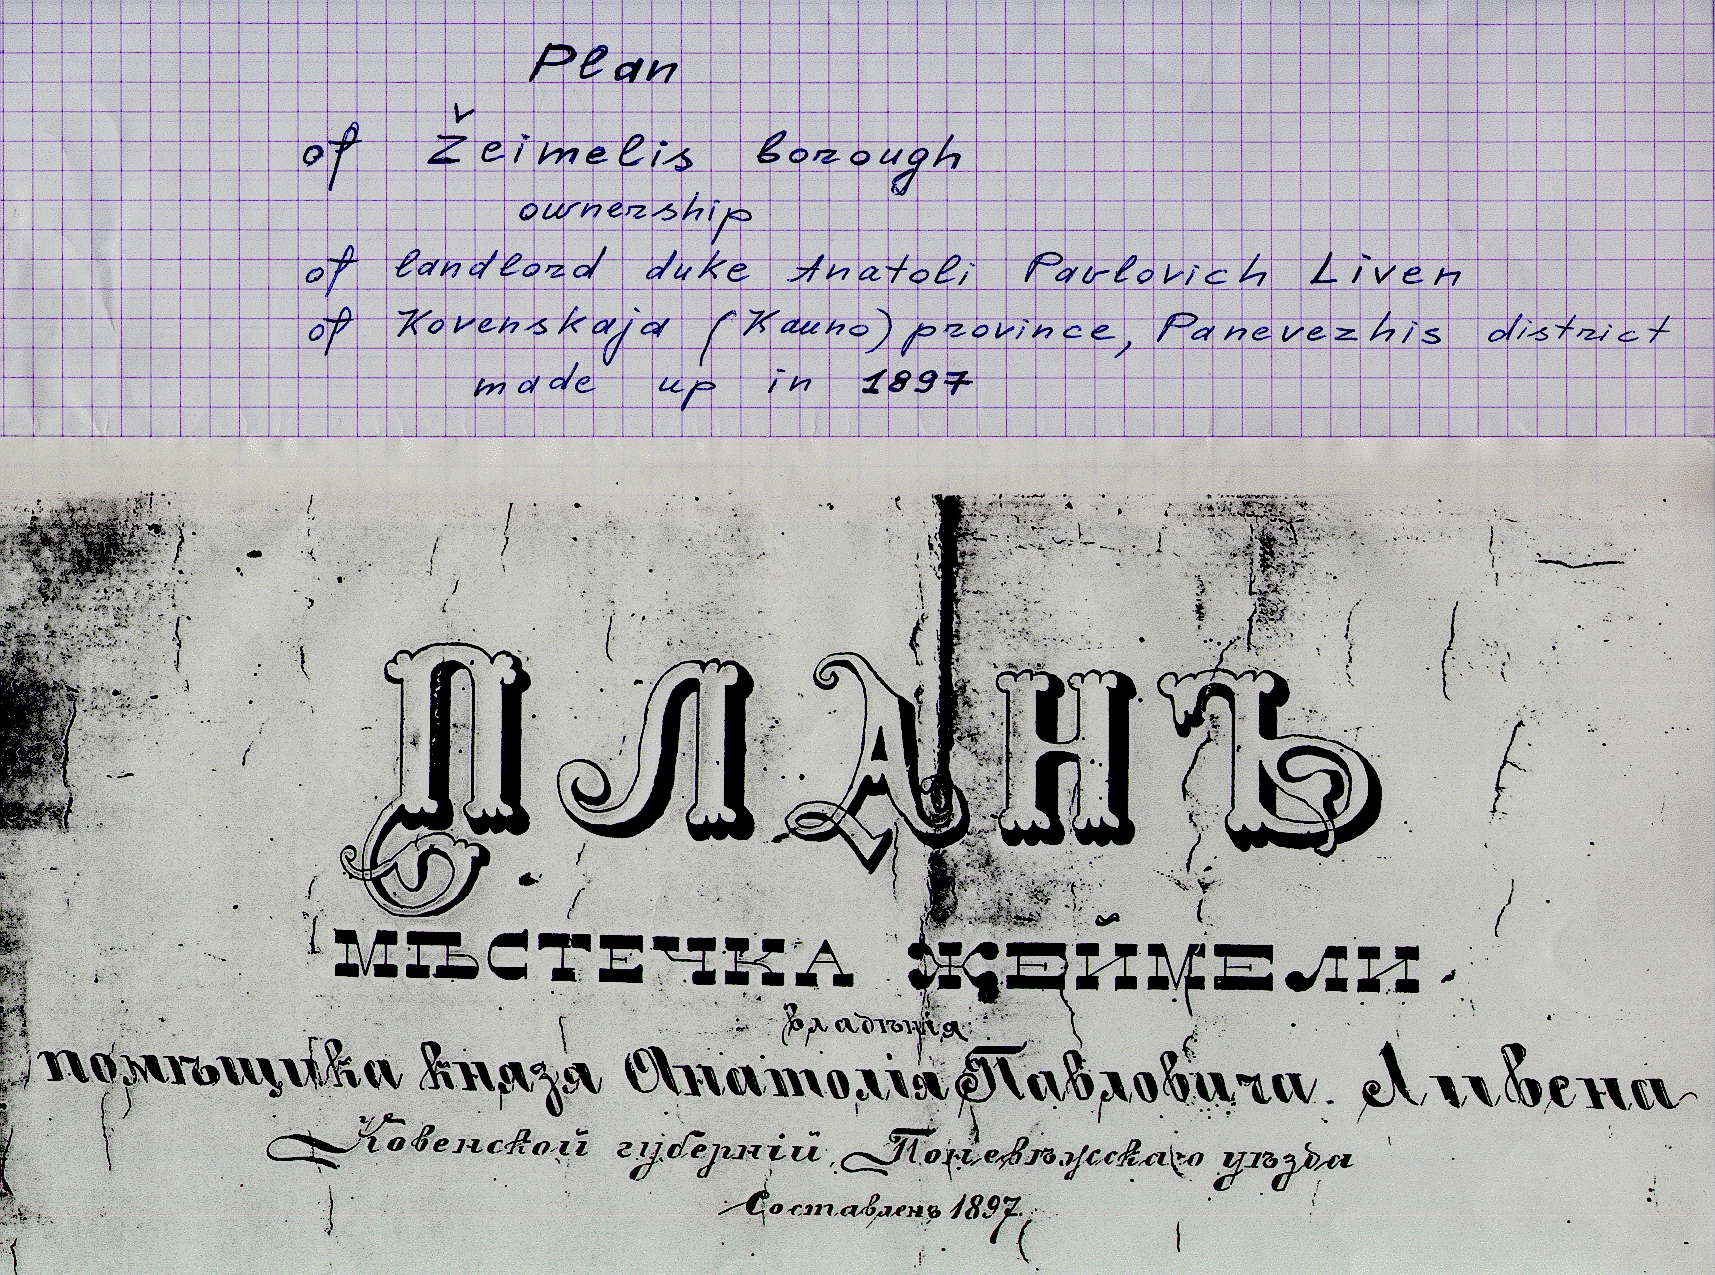 Plan
of Žeimelis borough
ownership
of landlord duke Anatoli Pavlovich Liven
of Kovenskaja (Kauno) province, Panevezhis district
made up in 1897
ПЛАНЪ
МѢСТЕЧКА ЖЕЙМЕЛИ
владѣнія
помѣщика князя Анатолія Павловича Ливена
Ковенской губерніи, Поневѣжскаго уѣзда
Составленъ 1897